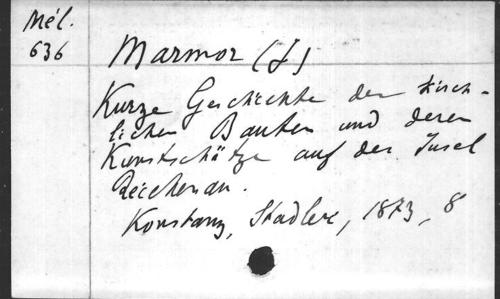 Mél.
636
Marmor (J)
Kurze Geschichte der kirch-
lichen Bauten und deren
Kunstschätze auf der Insel
Reichenau.
Konstanz, Stadler, 1873, 8